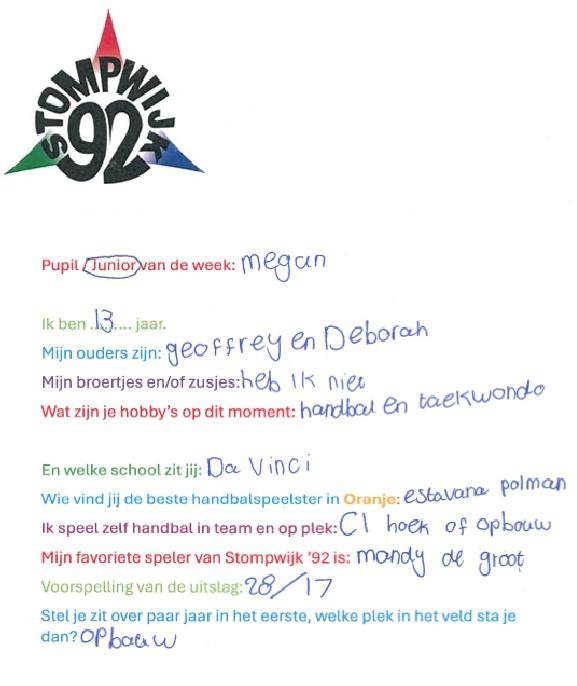 STOMPWIJK
92
Pupil /Junior van de week: megan
Ik ben .13.... jaar.
Mijn ouders zijn: geoffrey en Deborah
Mijn broertjes en/of zusjes: heb ik niet
Wat zijn je hobby's op dit moment: handbal en taekwondo
En welke school zit jij: Da Vinci
Wie vind jij de beste handbalspeelster in Oranje: estavana polman
Ik speel zelf handbal in team en op plek: C1 hoek of opbouw
Mijn favoriete speler van Stompwijk '92 is: mandy de groot
Voorspelling van de uitslag: 28/17
Stel je zit over paar jaar in het eerste, welke plek in het veld sta je
dan? opbouw